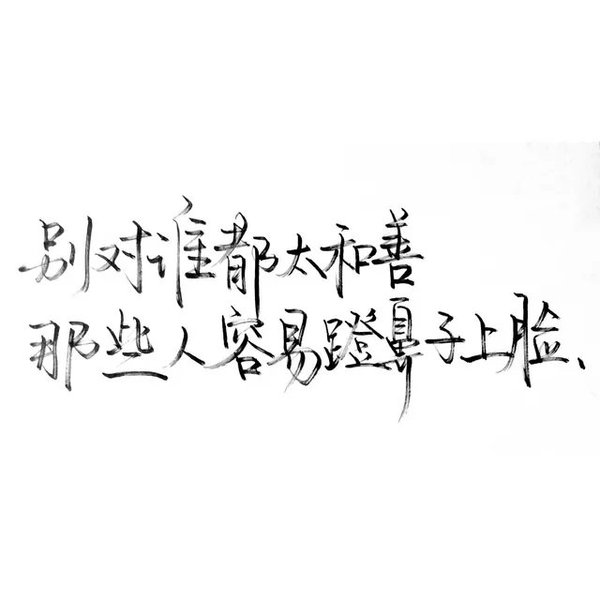 别对谁都太和善
那些人容易蹬鼻子上脸、